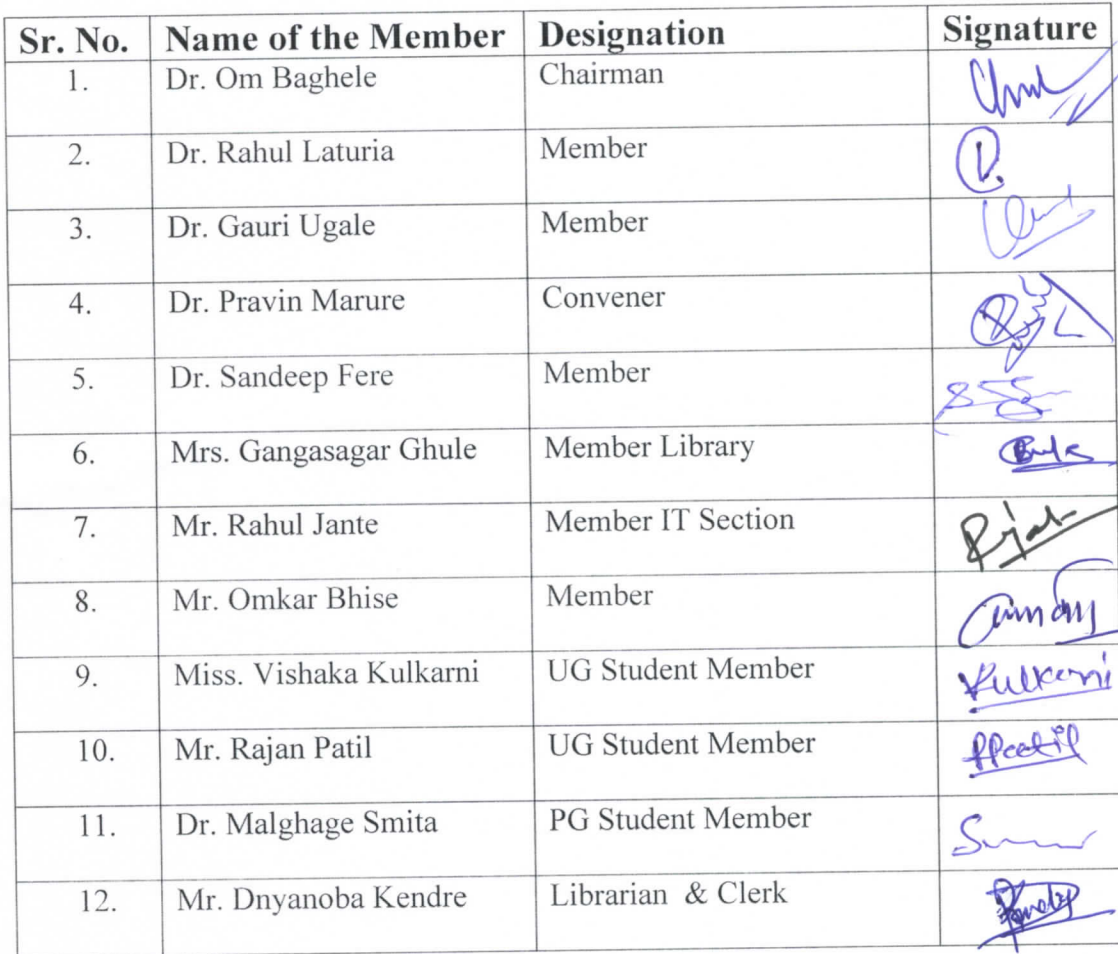 Sr. No. Name of the Member Designation Signature
1. Dr. Om Baghele Chairman
2. Dr. Rahul Laturia Member
3. Dr. Gauri Ugale Member
4. Dr. Pravin Marure Convener
5. Dr. Sandeep Fere Member
6. Mrs. Gangasagar Ghule Member Library
7. Mr. Rahul Jante Member IT Section
8. Mr. Omkar Bhise Member
9. Miss. Vishaka Kulkarni UG Student Member Kulkarni
10. Mr. Rajan Patil UG Student Member
11. Dr. Malghage Smita PG Student Member
12. Mr. Dnyanoba Kendre Librarian & Clerk